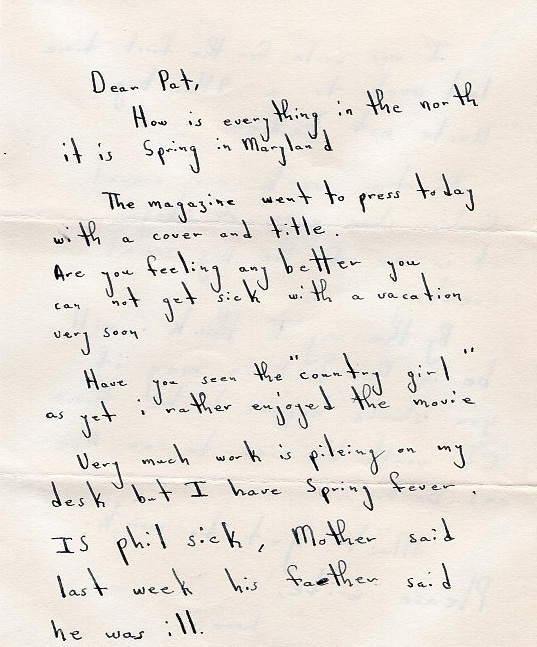 Dear Pat,
How is everything in the north
it is Spring in Maryland
The magazine went to press today
with a cover and title.
Are you feeling any better you
can not get sick with a vacation
very soon
Have you seen the "country girl"
as yet i rather enjoyed the movie
Very much work is pileing on my
desk but I have Spring fever.
IS phil sick, Mother said
last week his faether said
he was ill.